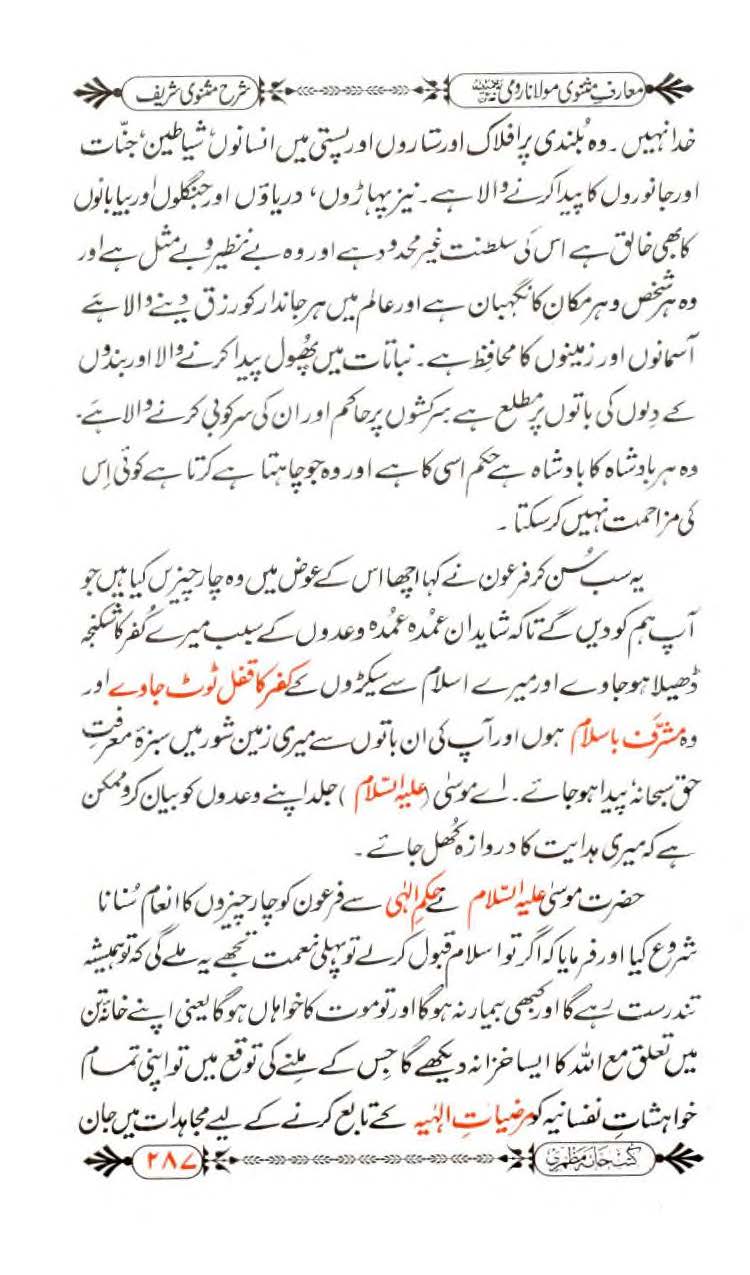 معارفِ مثنوی مولانا رومی
شرح مثنوی شریف
خدا نہیں۔ وہ بُلندی پر افلاک اور ستاروں اور پستی میں انسانوں ٗشیاطین ٗجنّات
اور جانوروں کا پیدا کرنے والا ہے۔ نیز پہاڑوں، دریاؤں اور جنگلوں اور بیابانوں
کا بھی خالق ہے اس کی سلطنت غیر محدود ہے اور وہ بے نظیر و بے مثل ہے اور
وہ ہر شخص و ہر مکان کا نگہبان ہے اور عالم میں ہر جاندار کو رزق دینے والا ہے
آسمانوں اور زمینوں کا محافظ ہے۔ نباتات میں پھُول پیدا کرنے والا اور بندوں
کے دِلوں کی باتوں پر مطلع ہے سرکشوں پر حاکم اور ان کی سرکوبی کرنے والا ہے۔
وہ ہر بادشاہ کا بادشاہ ہے حکم اسی کا ہے اور وہ جو چاہتا ہے کرتا ہے کوئی اِس
کی مزاحمت نہیں کر سکتا ۔
یہ سب سُن کر فرعون نے کہا اچھا اس کے عوض میں وہ چار چیزیں کیا ہیں جو
آپ ہم کو دیں گے تاکہ شاید ان عمُدہ عمُدہ وعدوں کے سبب میرے کُفر کا شکنجہ
ڈھیلا ہو جاوے اور میرے اسلام سے سیکڑوں کے کفر کا قفل ٹوٹ جاوے اور
وہ مشرَّف باسلام ہوں اور آپ کی ان باتوں سے میری زمین شور میں سبزۂ معرفتِ
حق سبحانہٗ پیدا ہو جائے۔ اے موسٰی (علیہ السّلام) جلد اپنے وعدوں کو بیان کرو ممکن
ہے کہ میری ہدایت کا دروازہ کھُل جائے ۔
حضرت موسیٰ علیہ السّلام نے حکمِ الٰہی سے فرعون کو چار چیزوں کا انعام سُنانا
شروع کیا اور فرمایا کہ اگر تو اسلام قبول کر لے تو پہلی نعمت تجھے یہ ملے گی کہ تو ہمیشہ
تندرست رہے گا اور کبھی بیمار نہ ہوگا اور تو موت کا خواہاں ہوگا یعنی اپنے خانۂ تن
میں تعلق مع اللہ کا ایسا خزانہ دیکھے گا جِس کے مِلنے کی توقع میں تو اپنی تمام
خواہشاتِ نفسانیہ کو مرضیاتِ الٰہیہ کے تابع کرنے کے لیے مجاہدات میں جان
کتب خانہ مظہری
۲۸۷